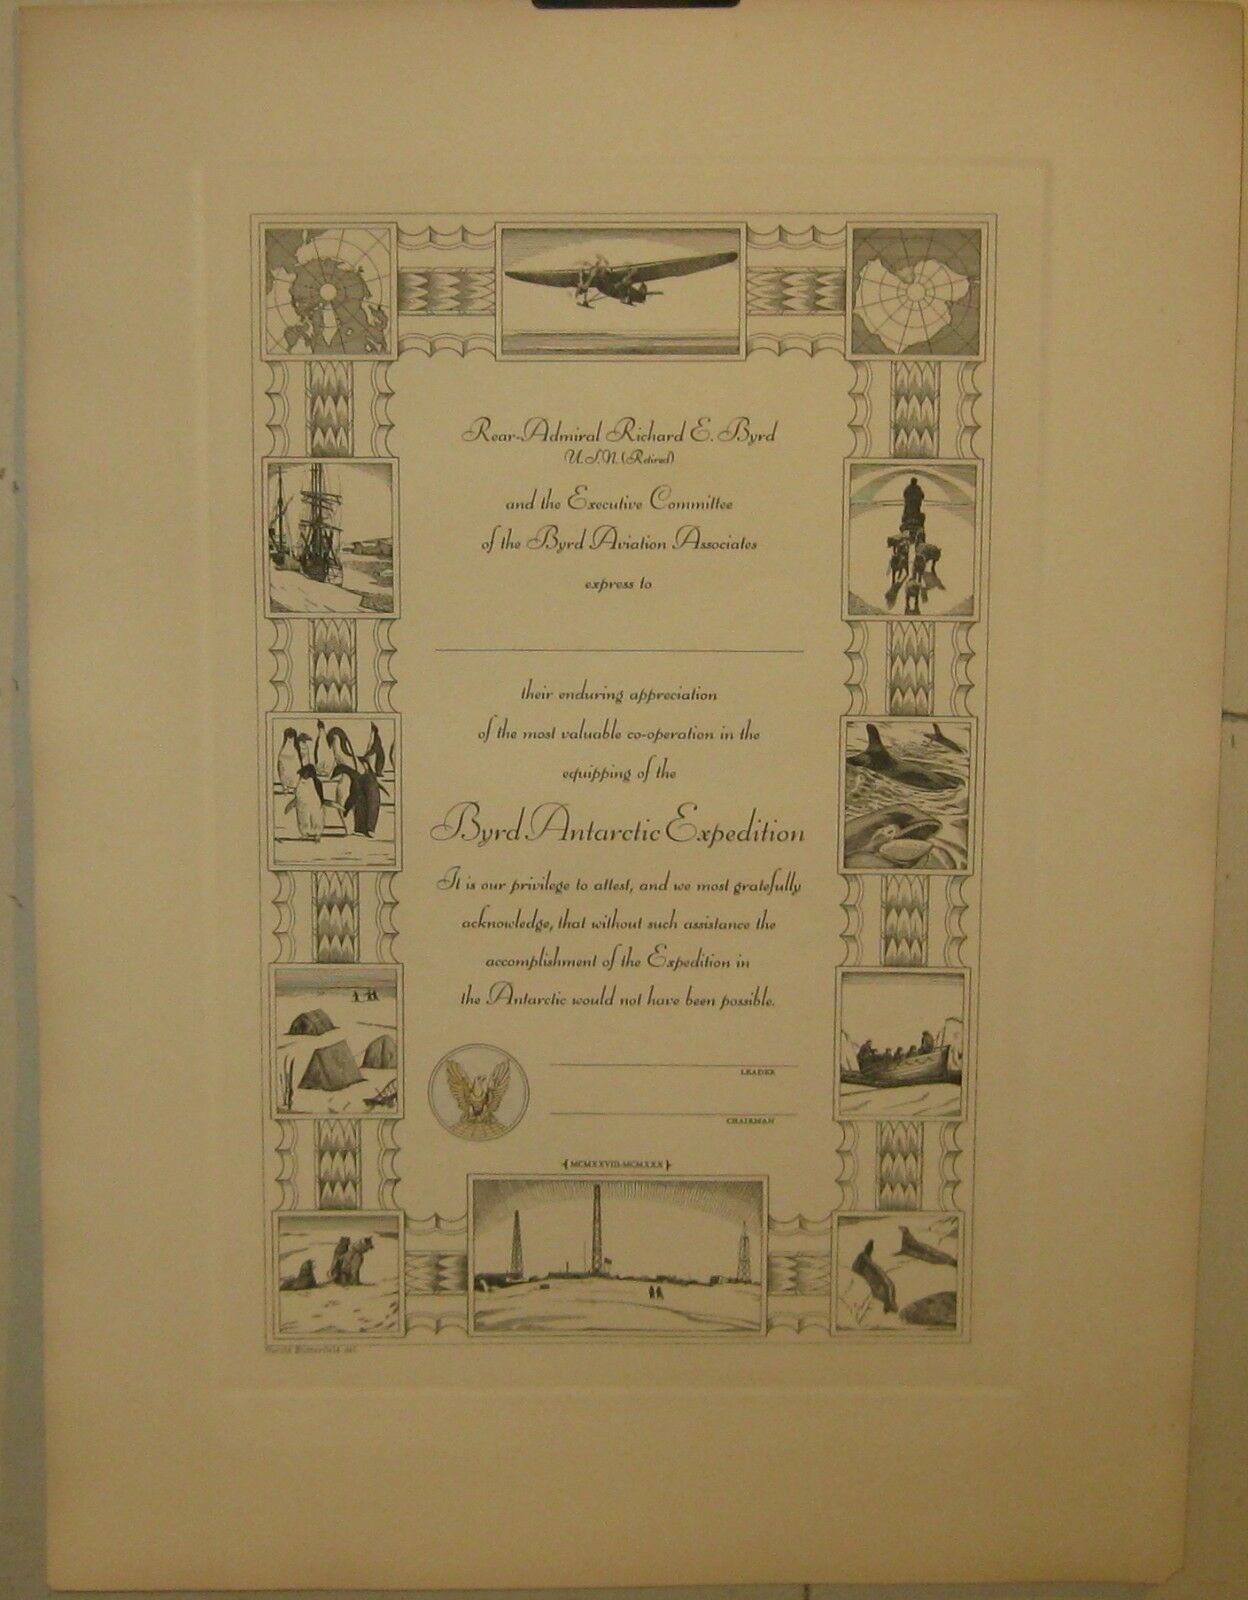 Rear-Admiral Richard E. Byrd
U.S.N. (Retired)
and the Executive Committee
of the Byrd Aviation Associates
express to
their enduring appreciation
of the most valuable co-operation in the
equipping of the
Byrd Antarctic Expedition
It is our privilege to attest, and we most gratefully
acknowledge, that without such assistance the
accomplishment of the Expedition in
the Antarctic would not have been possible.
LEADER
CHAIRMAN
MCMXXVIII-MCMXXX
del.